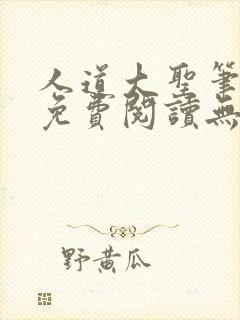 人道大聖筆
免費閱讀無
野黃瓜